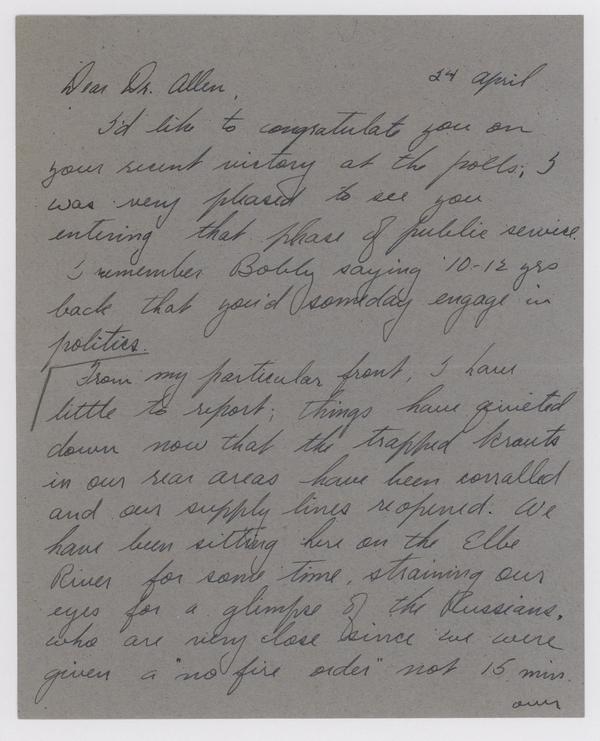 Dear Dr. Allen, 24 april
I'd like to congratulate you on
your recent victory at the polls; I
was very pleased to see you
entering that phase of public service.
I remember Bobby saying 10-12 yrs
back that you'd someday engage in
politics.
From my particular front, I have
little to report; things have quieted
down now that the trapped krauts
in our rear areas have been corralled
and our supply lines reopened. We
have been sitting here on the Elbe
River for some time, straining our
eyes for a glimpse of the Russians,
who are very close since we were
given a "no fire order" not 15 min.
over